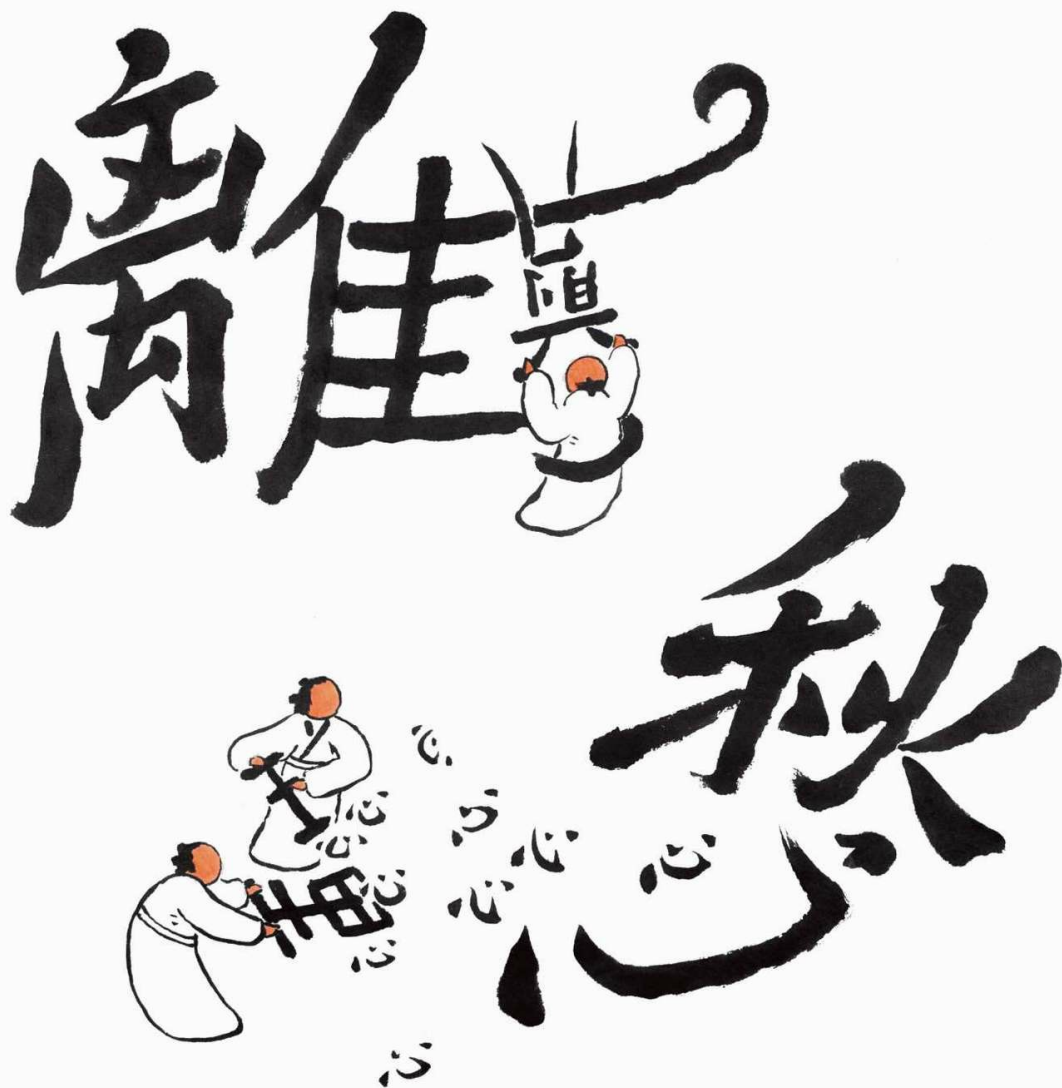 離
愁
心
心
心
心
心
心
心
心
心